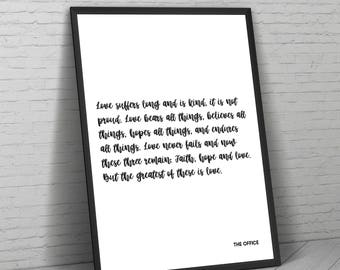 Love suffers long and is kind, it is not
proud. Love bears all things, believes all
things, hopes all things, and endures
all things. Love never fails and now
these three remain: Faith, hope and love.
But the greatest of these is love.
THE OFFICE